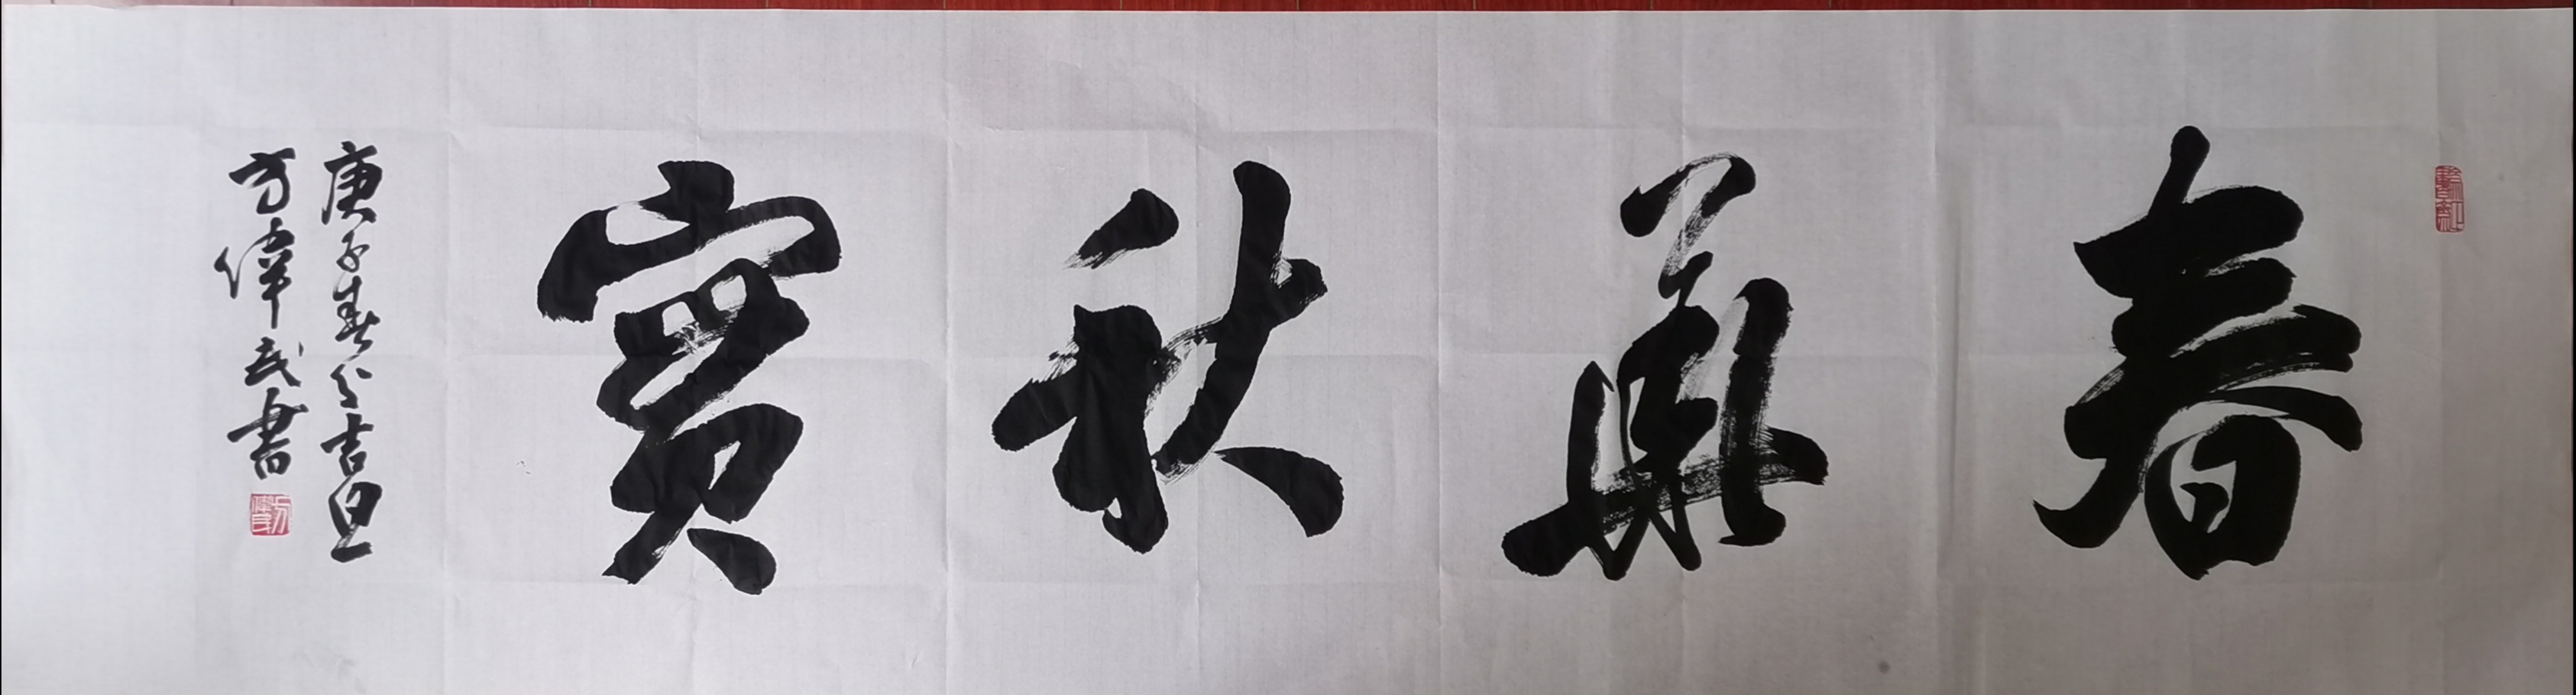 春華秋實
庚子春分吉旦
方偉武書